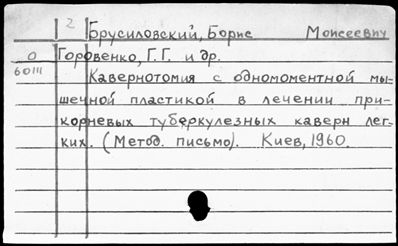 2 Брусиловский, Борис Моисеевич
О Горовенко, Г.Г. и др.
60111 Кавернотомия с одномоментной мы-
шечной пластикой в лечении при-
корневых туберкулезных каверн лег-
ких. (Метод. письмо). Киев, 1960.